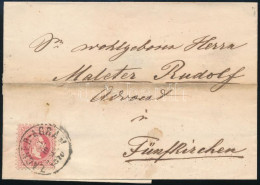 Sr wohlgeboren Herrn
Maleter Rudolf
Advocat
in
Fünfkirchen
ZAGREB AGRAM